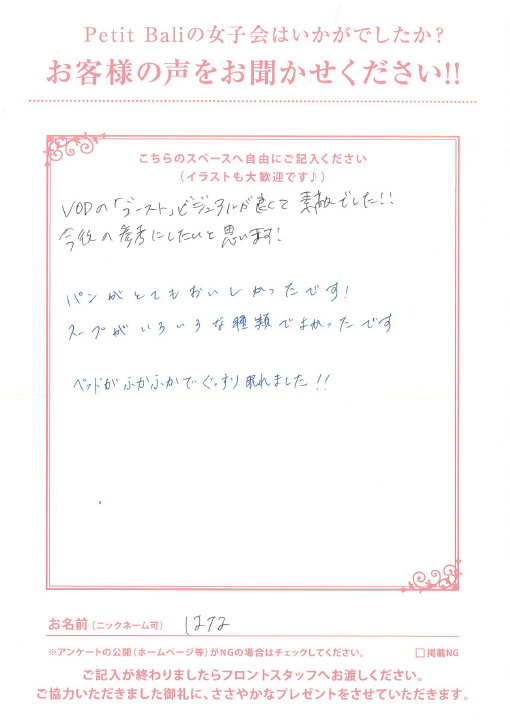 Petit Baliの女子会はいかがでしたか?
お客様の声をお聞かせください!!
こちらのスペースへ自由にご記入ください
(イラストも大歓迎です♪)
VODの「ブースト」ビジュアルが良くて 素敵でした!!
今後の参考にしたいと思います!
パンがとてもおいしかったです!
スープがいろいろな種類でよかったです
ベッドがふかふかでぐっすり眠れました!!
お名前(ニックネーム可) はな
※アンケートの公開(ホームページ等)がNGの場合はチェックしてください。 □掲載NG
ご記入が終わりましたらフロントスタッフへお渡しください。
ご協力いただきました御礼に、ささやかなプレゼントをさせていただきます。